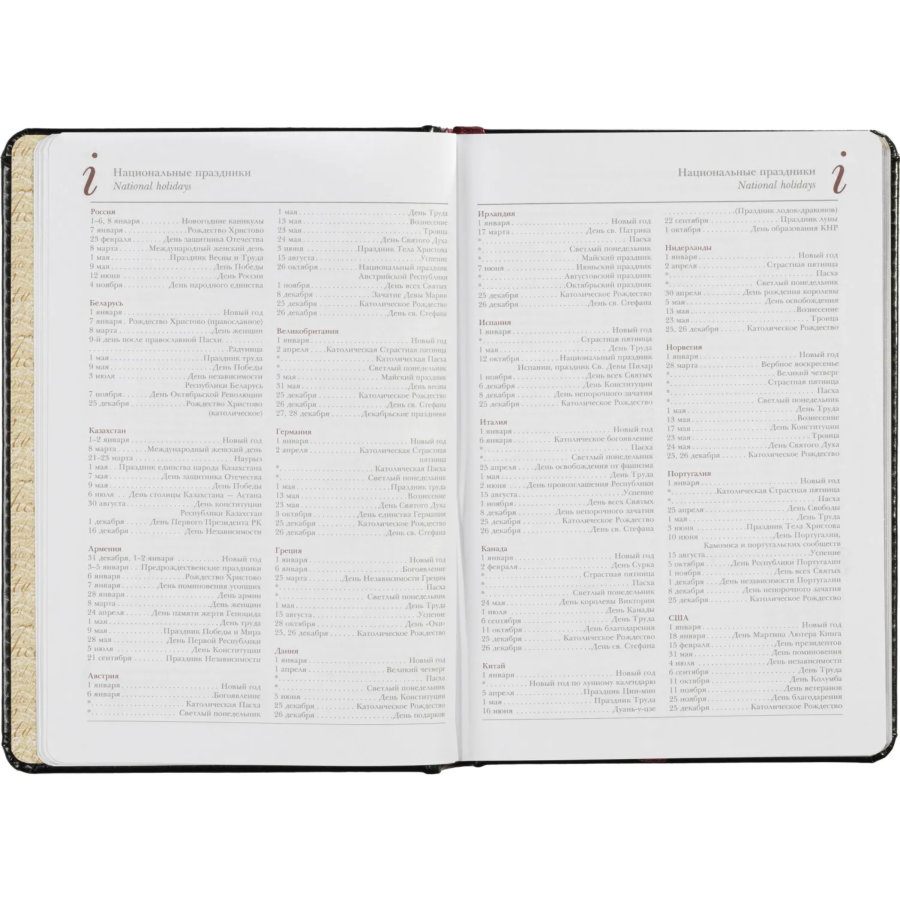 i
Национальные праздники
National holidays
Россия
1–6, 8 января Новогодние каникулы
7 января Рождество Христово
23 февраля День защитника Отечества
8 марта Международный женский день
1 мая Праздник Весны и Труда
9 мая День Победы
12 июня День России
4 ноября День народного единства
Беларусь
1 января Новый год
7 января Рождество Христово (православное)
8 марта День женщин
9-й день после православной Пасхи
Радуница
1 мая Праздник труда
9 мая День Победы
3 июля День независимости
Республики Беларусь
7 ноября День Октябрьской Революции
25 декабря Рождество Христово
(католическое)
Казахстан
1–2 января Новый год
8 марта Международный женский день
21–23 марта Наурыз
1 мая Праздник единства народа Казахстана
7 мая День защитника Отечества
9 мая День Победы
6 июля День столицы Казахстана — Астана
30 августа День конституции
Республики Казахстан
1 декабря День Первого Президента РК
16 декабря День Независимости
Армения
31 декабря, 1–2 января Новый год
3–5 января Предрождественские праздники
6 января Рождество Христово
7 января День поминовения усопших
28 января День армии
8 марта День женщин
24 апреля День памяти жертв Геноцида
1 мая День труда
9 мая Праздник Победы и Мира
28 мая День Первой Республики
5 июля День Конституции
21 сентября Праздник Независимости
Австрия
1 января Новый год
6 января Богоявление
* Католическая Пасха
* Светлый понедельник
1 мая День Труда
13 мая Вознесение
23 мая Троица
24 мая День Святого Духа
3 июня Праздник Тела Христова
15 августа Успение
26 октября Национальный праздник
Австрийской Республики
1 ноября День всех Святых
8 декабря Зачатие Девы Марии
25 декабря Католическое Рождество
26 декабря День св. Стефана
Великобритания
1 января Новый год
2 апреля Католическая Страстная пятница
* Католическая Пасха
* Светлый понедельник
3 мая Майский праздник
31 мая День весны
25 декабря Католическое Рождество
26 декабря День св. Стефана
27, 28 декабря Декабрьские праздники
Германия
1 января Новый год
2 апреля Католическая Страстная
пятница
* Католическая Пасха
* Светлый понедельник
1 мая Праздник труда
13 мая Вознесение
23 мая День Святого Духа
3 октября День единства Германии
25 декабря Католическое Рождество
26 декабря День св. Стефана
Греция
1 января Новый год
6 января Богоявление
25 марта День Независимости Греции
* Пасха
* Светлый понедельник
1 мая День Труда
15 августа Успение
28 октября День «Охи»
25, 26 декабря Католическое Рождество
Дания
1 января Новый год
1 апреля Великий четверг
* Пасха
* Светлый понедельник
5 июня День Конституции
25 декабря Католическое Рождество
26 декабря День подарков
Национальные праздники
National holidays
i
Ирландия
1 января Новый год
17 марта День св. Патрика
* Пасха
* Светлый понедельник
* Майский праздник
7 июня Июньский праздник
* Августовский праздник
* Октябрьский праздник
25 декабря Католическое Рождество
26 декабря День св. Стефана
Испания
1 января Новый год
* Страстная пятница
1 мая День Труда
12 октября Национальный праздник
Испании, праздник Св. Девы Пилар
1 ноября День всех Святых
6 декабря День Конституции
8 декабря День непорочного зачатия
25 декабря Католическое Рождество
Италия
1 января Новый год
6 января Католическое богоявление
* Пасха
* Светлый понедельник
25 апреля День освобождения от фашизма
1 мая День Труда
2 июня День провозглашения Республики
15 августа Успение
1 ноября День всех Святых
8 декабря День непорочного зачатия
25 декабря Католическое Рождество
26 декабря День св. Стефана
Канада
1 января Новый год
2 февраля День Сурка
* Страстная пятница
* Пасха
* Светлый понедельник
24 мая День королевы Виктории
1 июля День Канады
6 сентября День Труда
11 октября День благодарения
25 декабря Католическое Рождество
26 декабря День св. Стефана
Китай
1 января Новый год
* Новый год по лунному календарю
5 апреля Праздник Цин-мин
1 мая Праздник Труда
16 июня Дуань-у-цзе
(Праздник лодок-драконов)
22 сентября Праздник луны
1 октября День образования КНР
Нидерланды
1 января Новый год
2 апреля Страстная пятница
* Пасха
* Светлый понедельник
30 апреля День рождения королевы
5 мая День освобождения
13 мая Вознесение
23 мая Троица
25, 26 декабря Католическое Рождество
Норвегия
1 января Новый год
28 марта Вербное воскресенье
* Великий четверг
* Страстная пятница
* Пасха
* Светлый понедельник
1 мая День Труда
13 мая Вознесение
17 мая День Конституции
23 мая Троица
24 мая День Святого Духа
25, 26 декабря Католическое Рождество
Португалия
1 января Новый год
* Католическая Страстная пятница
* Пасха
25 апреля День Свободы
1 мая День Труда
* Праздник Тела Христова
10 июня День Португалии,
Камоэнса и португальских сообществ
15 августа Успение
5 октября День Республики Португалии
1 ноября День всех Святых
1 декабря День независимости Португалии
8 декабря День непорочного зачатия
25 декабря Католическое Рождество
США
1 января Новый год
18 января День Мартина Лютера Кинга
15 февраля День президентов
31 мая День поминовения
4 июля День независимости
6 сентября День Труда
11 октября День Колумба
11 ноября День ветеранов
25 ноября День благодарения
25 декабря Католическое Рождество